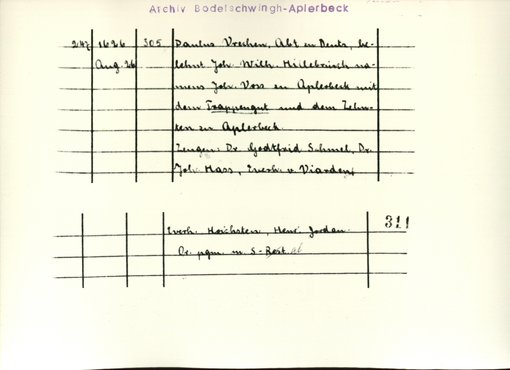 Archiv Bodelschwingh-Aplerbeck
247 1626 305 Paulus Vrechen, Abt zu Deutz, be-
Aug. 26 lehnt Joh. Wilh. Hillebrinch na-
mens Joh. Voss zu Aplerbeck mit
dem Trappengut und dem Zehn-
ten zu Aplerbeck.
Zeugen: Dr. Godtfrid Schmel, Dr.
Joh. Hass, Everh. v. Viarden,
Everh. Hoichsten, Henr. Jordan. 311
Or. pgm. m. S-Rest. ab